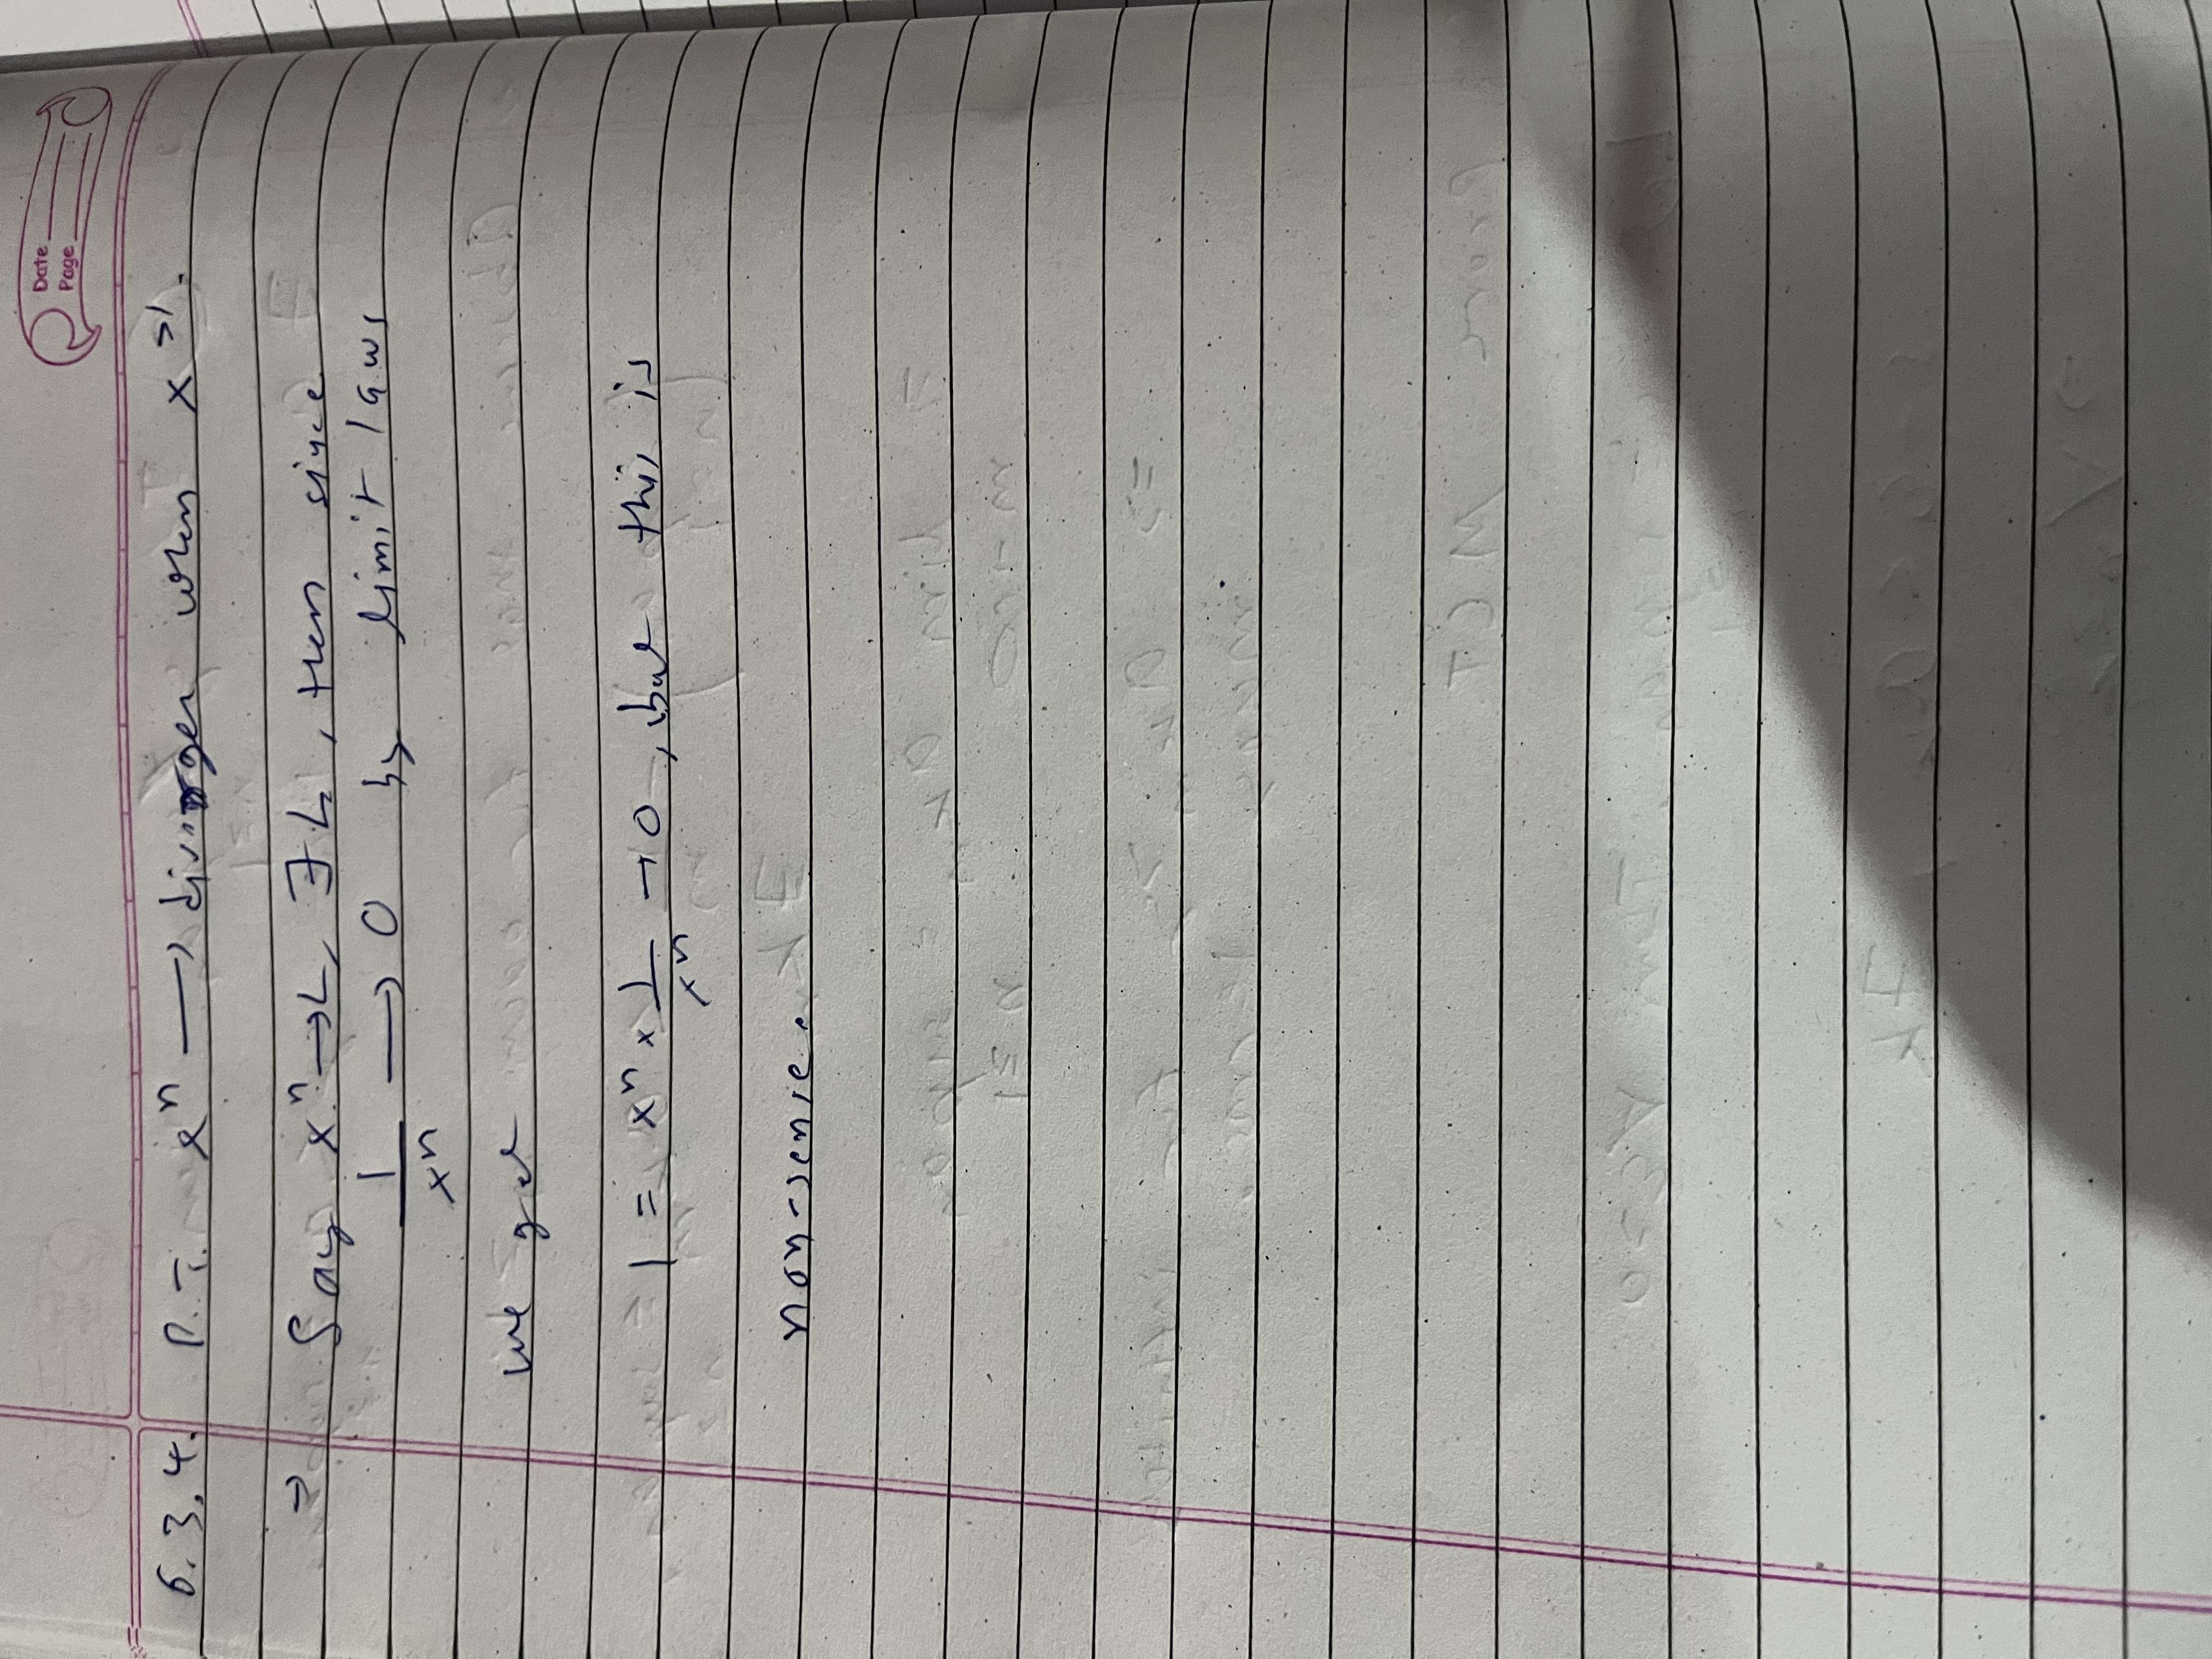 Date
Page
6.3.4. P.T. xⁿ ⟶ diverges when x >1.
⇒ Say xⁿ → L, ∃ L, then since
1/xⁿ ⟶ 0 by limit laws
we get
1 = xⁿ × 1/xⁿ → 0, but this is
non-sense.